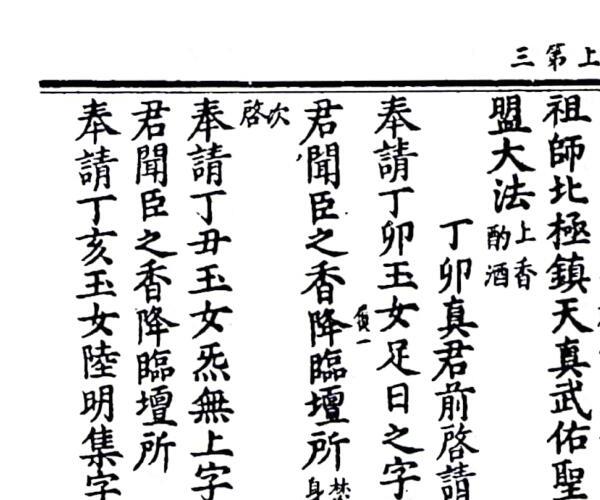 上第三
祖師北極鎮天真武佑聖
盟大法上香酌酒
丁卯真君前啓請
奉請丁卯玉女足日之字
君聞臣之香降臨壇所
次啓
奉請丁丑玉女炁無上字
君聞臣之香降臨壇所
奉請丁亥玉女陸明集字